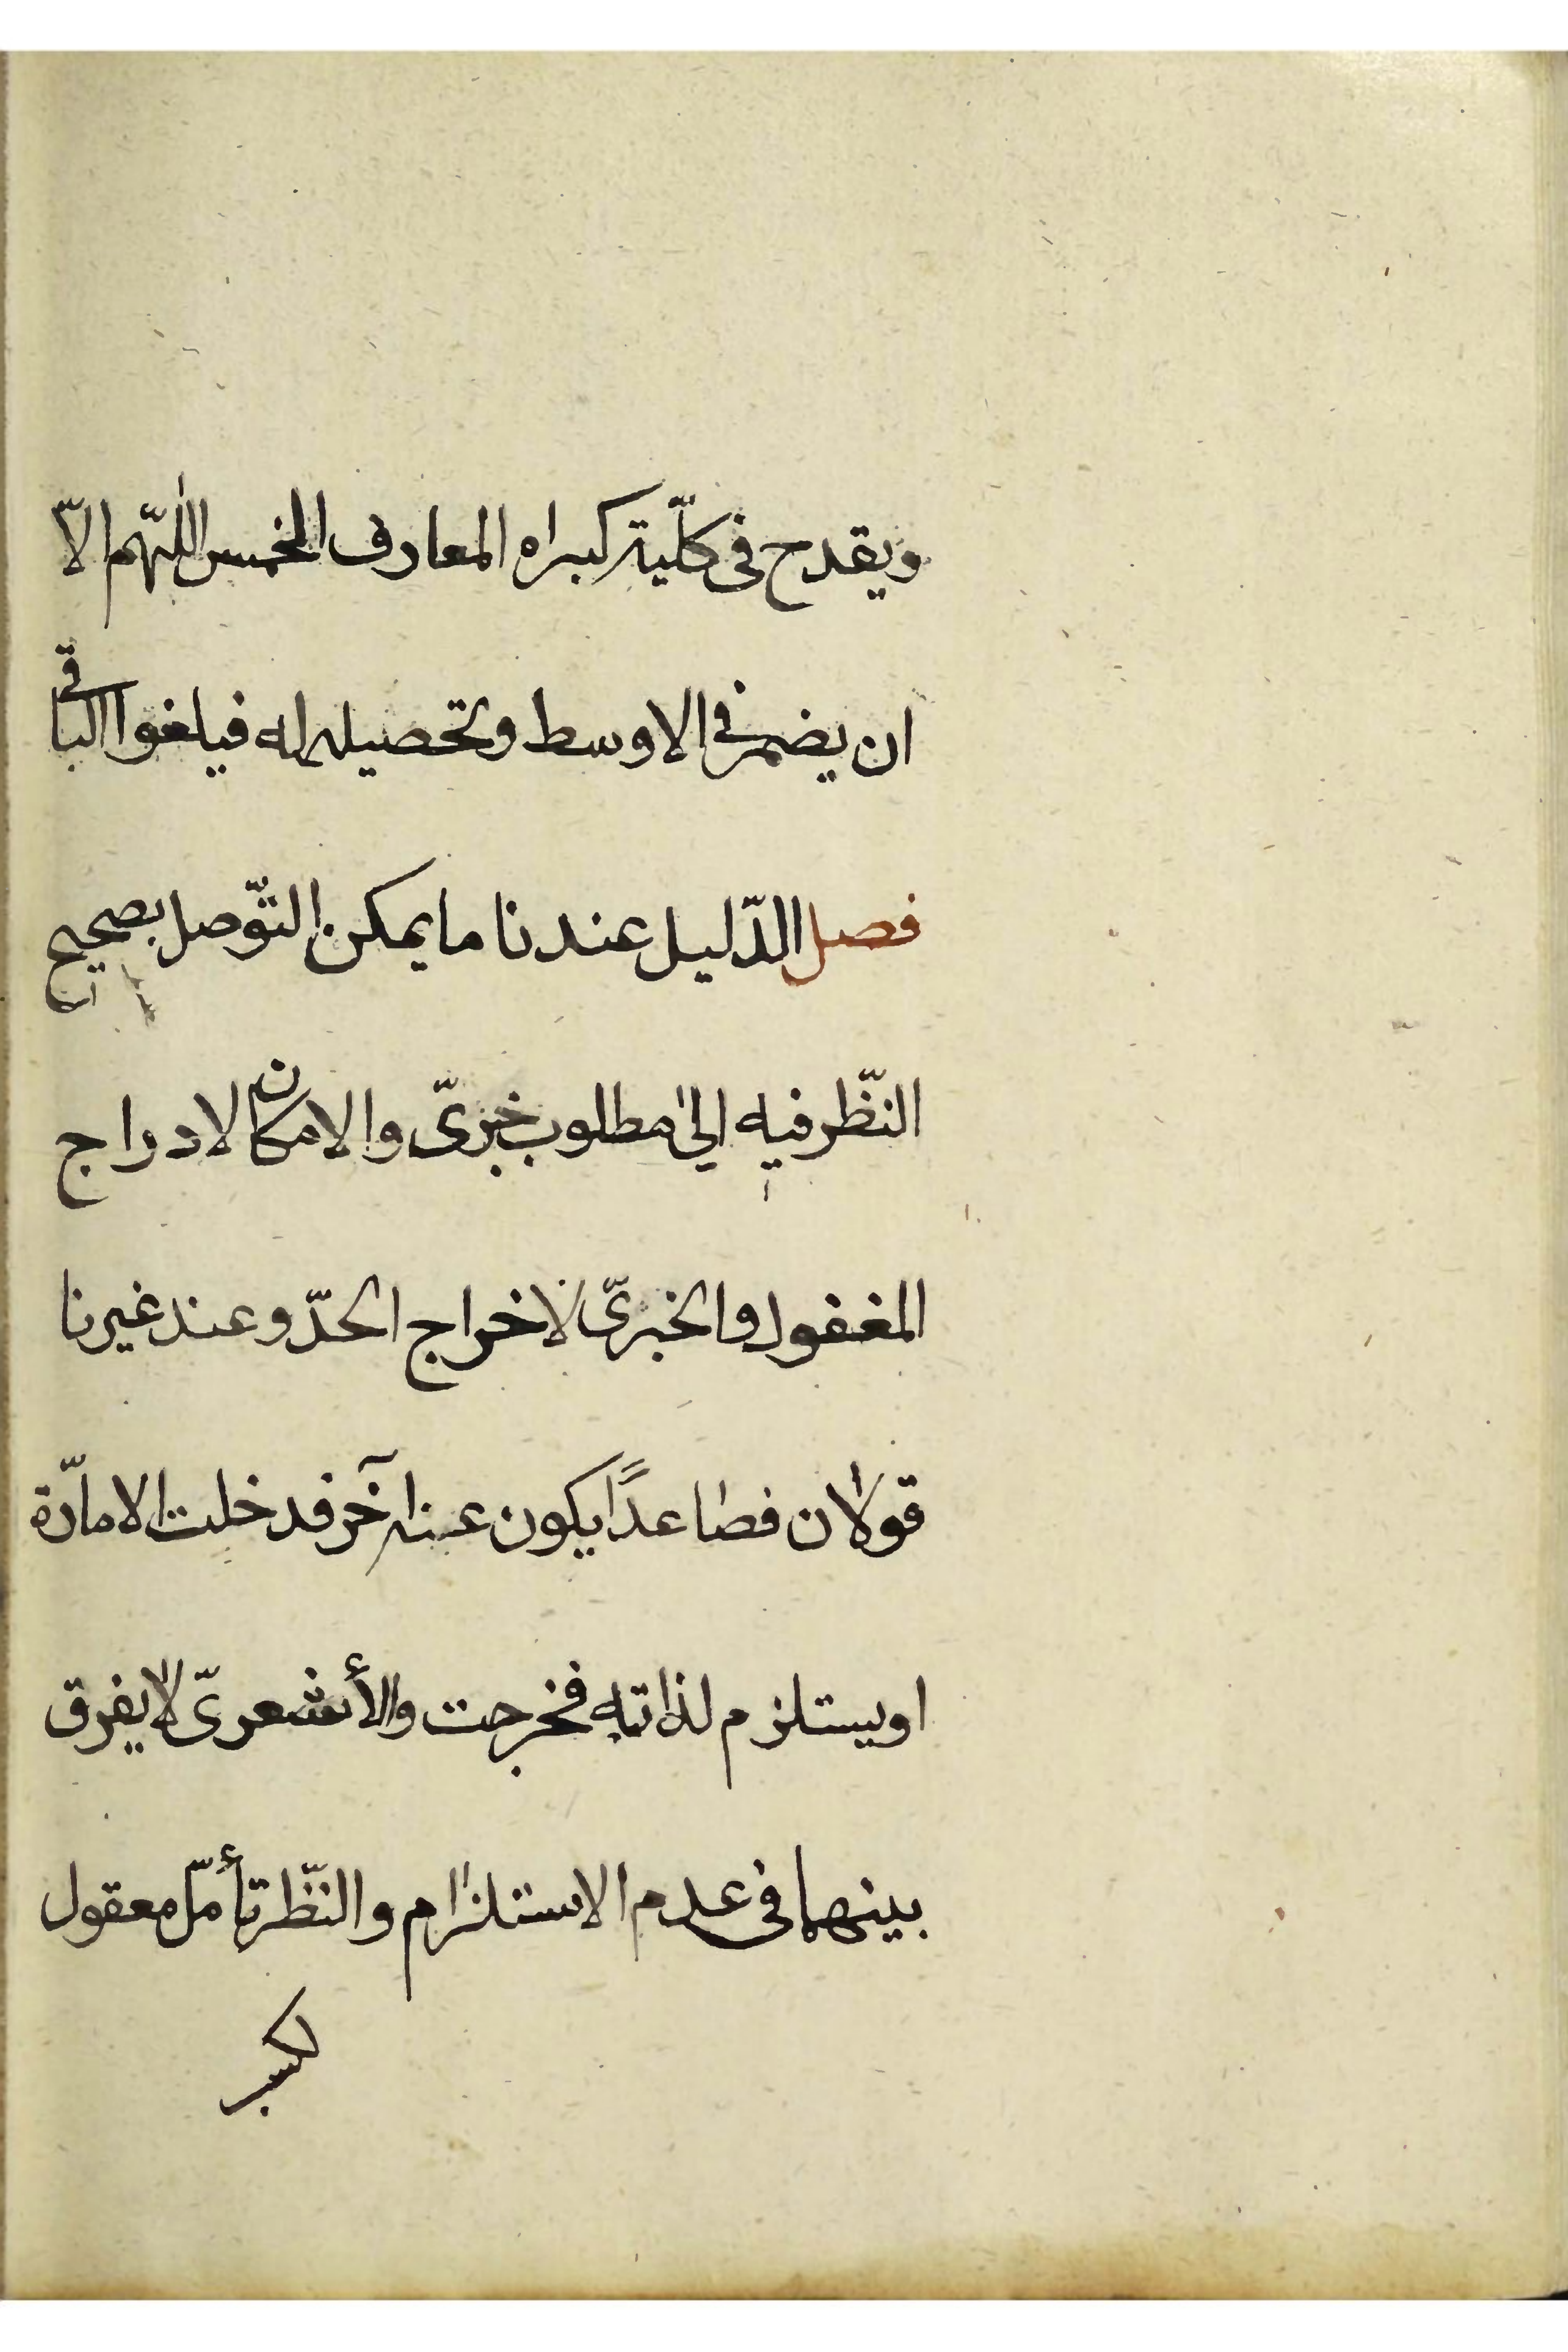 ويقدح فى كلّية كبراه المعارف الخمس اللّهم الاّ
ان يضمر فى الاوسط وتحصيله له فيلغوا الباقى
فصل الدّليل عندنا ما يمكن التّوصل بصحيح
النّظر فيه الى مطلوب خبرىّ والامكان لادراج
المغفول والخبرىّ لاخراج الحدّ وعند غيرنا
قولان فصاعدًا يكون عنه آخر فدخلت الامارّة
او يستلزم لذاته فخرجت والأشعرىّ لا يفرق
بينهما فى عدم الاستلزام والنّظر تأمّل معقول
لكسب